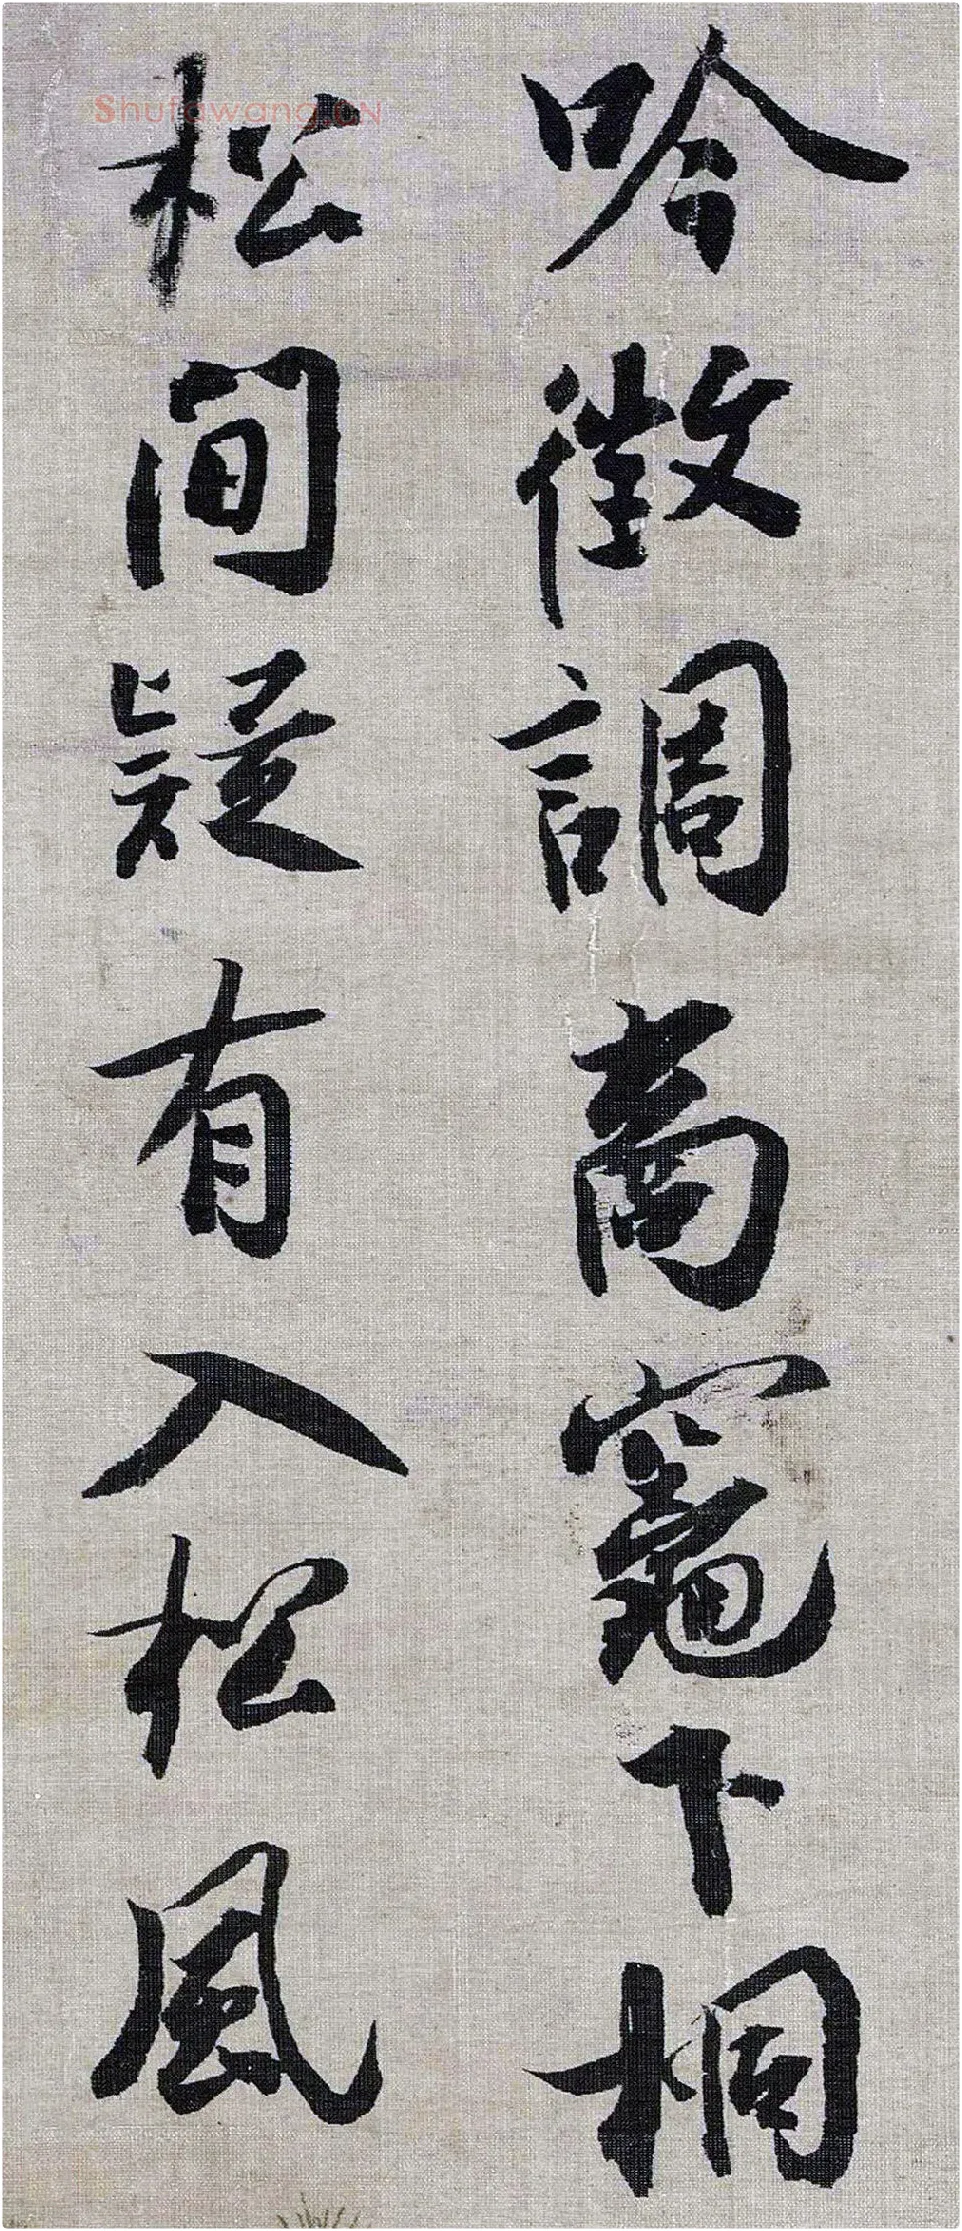 吟徵調商竈下桐
松間疑有入松風
Shufawang.CN